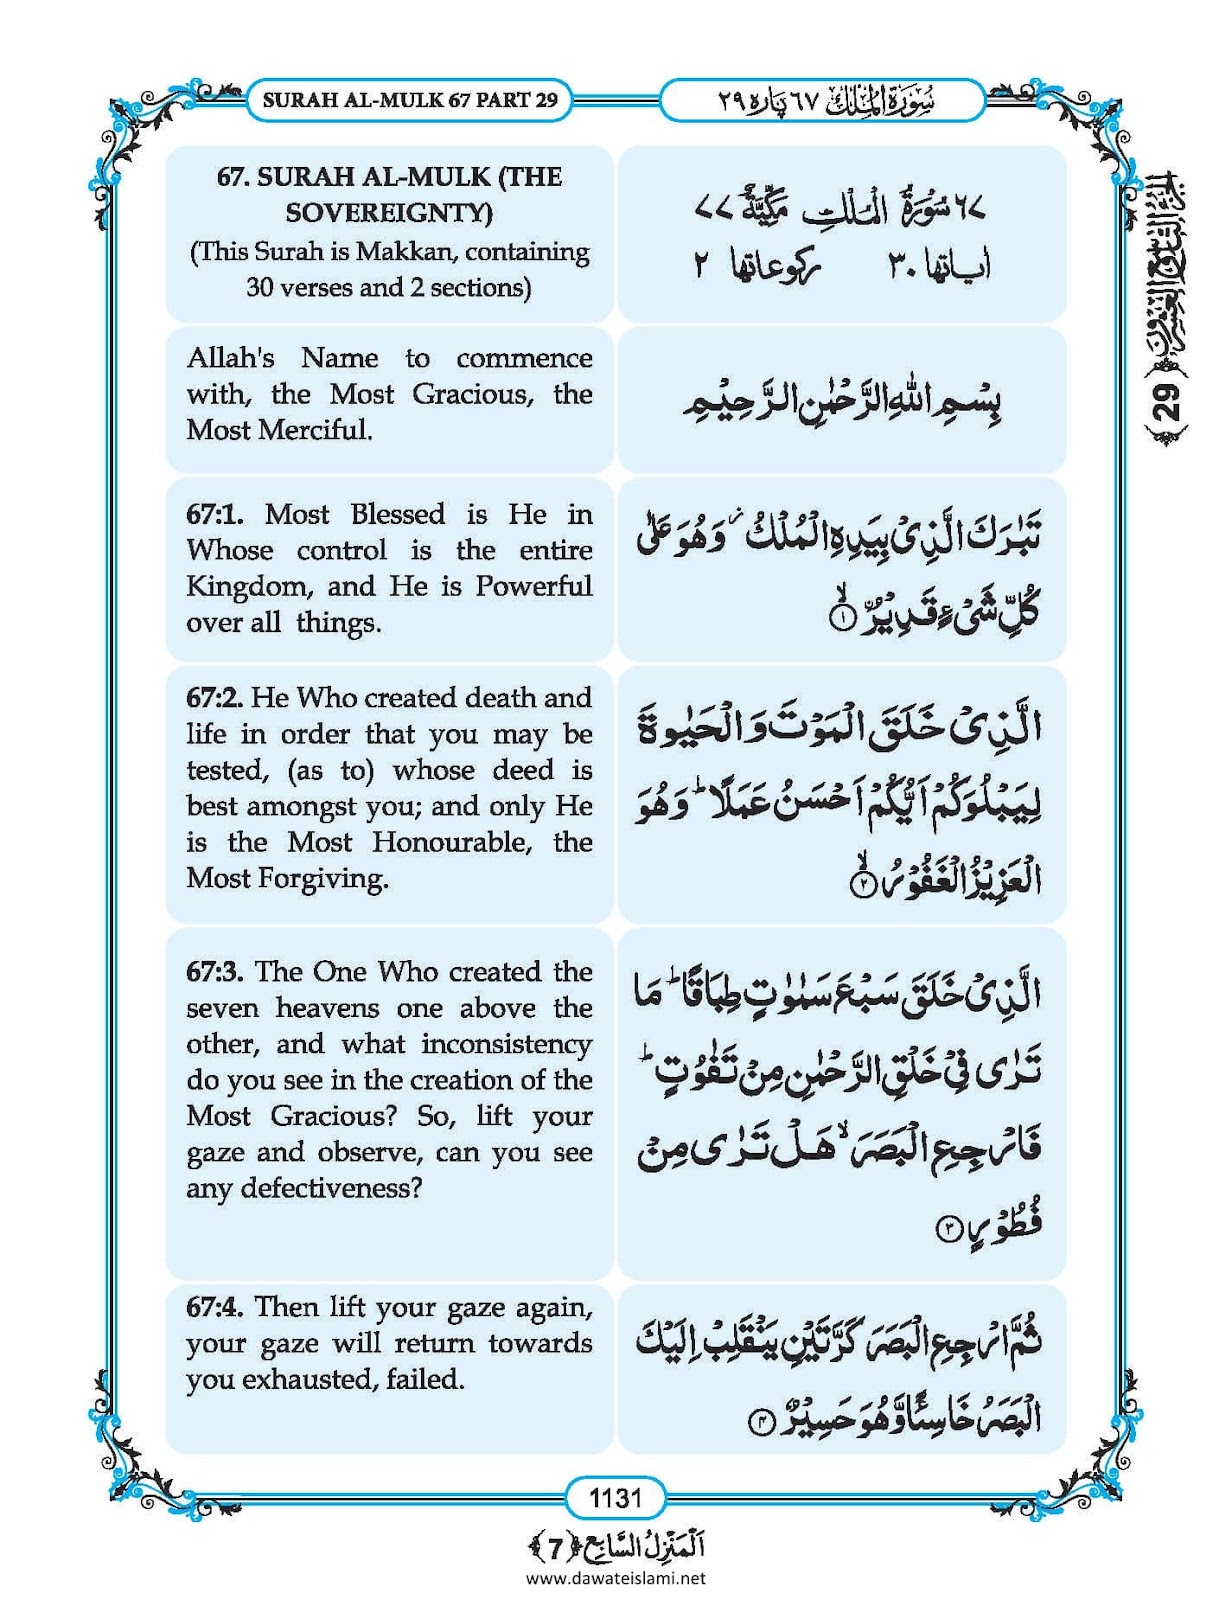 SURAH AL-MULK 67 PART 29
سُوْرَةُ الْمُلْك ٦٧ پاره ٢٩
67. SURAH AL-MULK (THE
SOVEREIGNTY)
(This Surah is Makkan, containing
30 verses and 2 sections)
٦٧ سُوْرَةُ الْمُلْكِ مَكِّيَّةٌ ٧٧
اٰیاتها ٣٠ رکوعاتها ٢
Allah's Name to commence
with, the Most Gracious, the
Most Merciful.
بِسْمِ اللّٰهِ الرَّحْمٰنِ الرَّحِیْمِ
67:1. Most Blessed is He in
Whose control is the entire
Kingdom, and He is Powerful
over all things.
تَبٰرَكَ الَّذِیْ بِیَدِهِ الْمُلْكُ ٘ وَهُوَ عَلٰی
كُلِّ شَیْءٍ قَدِیْرُ ۙ ﴿١﴾
67:2. He Who created death and
life in order that you may be
tested, (as to) whose deed is
best amongst you; and only He
is the Most Honourable, the
Most Forgiving.
الَّذِیْ خَلَقَ الْمَوْتَ وَ الْحَیٰوةَ
لِیَبْلُوَكُمْ اَیُّكُمْ اَحْسَنُ عَمَلًا ؕ وَ هُوَ
الْعَزِیْزُ الْغَفُوْرُ ۙ ﴿٢﴾
67:3. The One Who created the
seven heavens one above the
other, and what inconsistency
do you see in the creation of the
Most Gracious? So, lift your
gaze and observe, can you see
any defectiveness?
الَّذِیْ خَلَقَ سَبْعَ سَمٰوٰتٍ طِبَاقًا ؕ مَا
تَرٰی فِیْ خَلْقِ الرَّحْمٰنِ مِنْ تَفٰوُتٍ ؕ
فَارْجِعِ الْبَصَرَ ۙ هَلْ تَرٰی مِنْ
فُطُوْرٍ ﴿٣﴾
67:4. Then lift your gaze again,
your gaze will return towards
you exhausted, failed.
ثُمَّ ارْجِعِ الْبَصَرَ كَرَّتَیْنِ یَنْقَلِبْ اِلَیْكَ
الْبَصَرُ خَاسِئًا وَّ هُوَ حَسِیْرٌ ﴿٤﴾
الجزء التاسع العشرون ﴿29﴾
1131
اَلْمَنْزِلُ السَّابِع ﴿7﴾
www.dawateislami.net